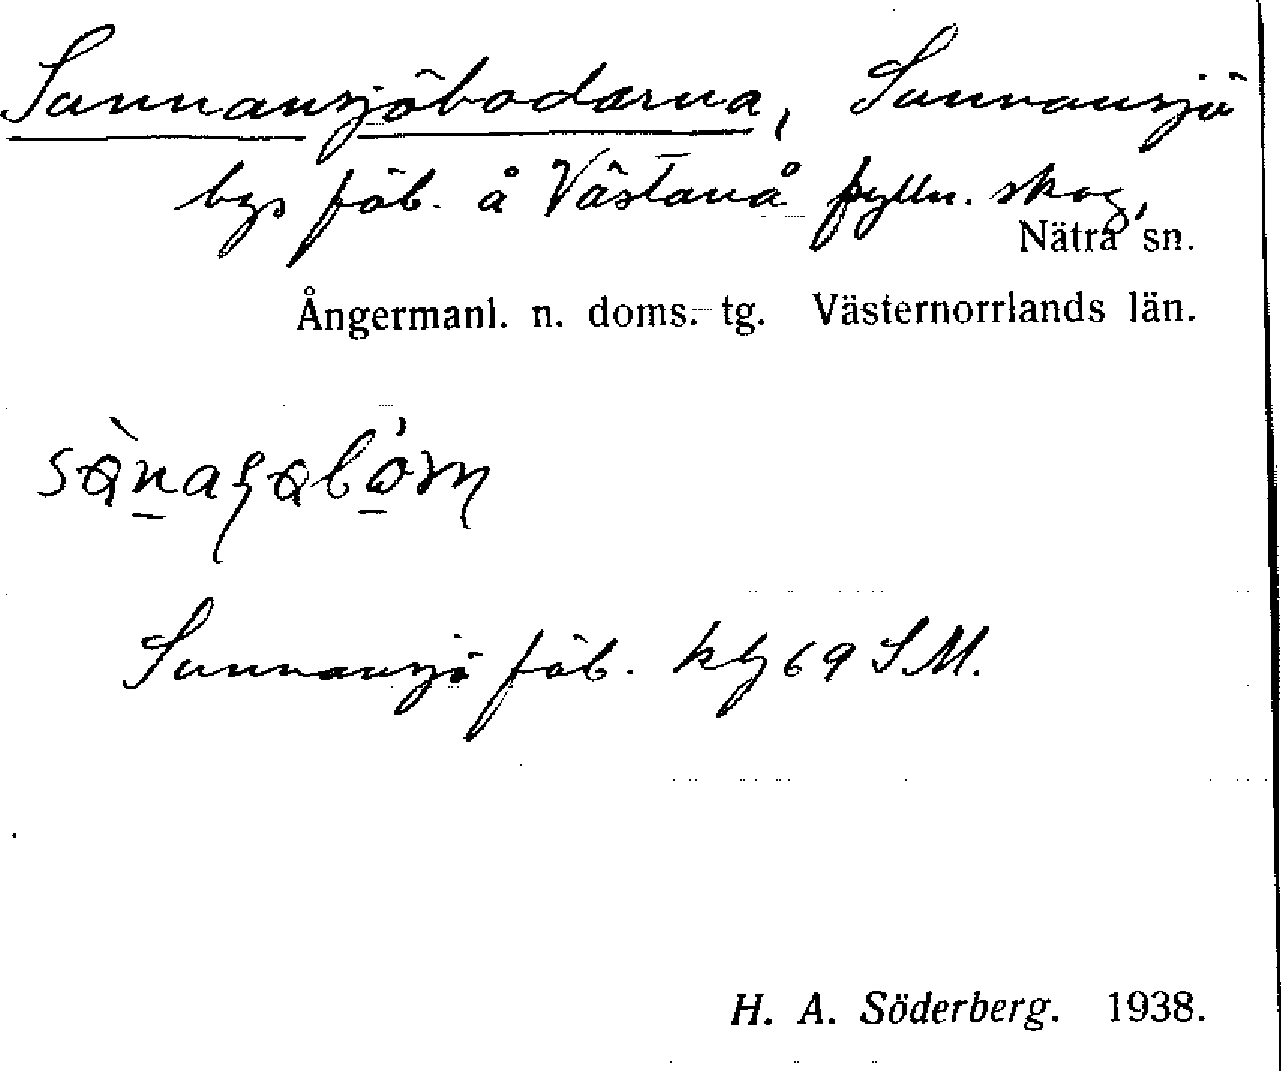 Sunnansjöbodarna, Sunnansjö
bys fäb. å Västanå fylln. skog,
Nätra sn.
Ångermanl. n. doms.-tg. Västernorrlands län.
Sunnansjö fäb. kbl 69 SM.
H. A. Söderberg. 1938.